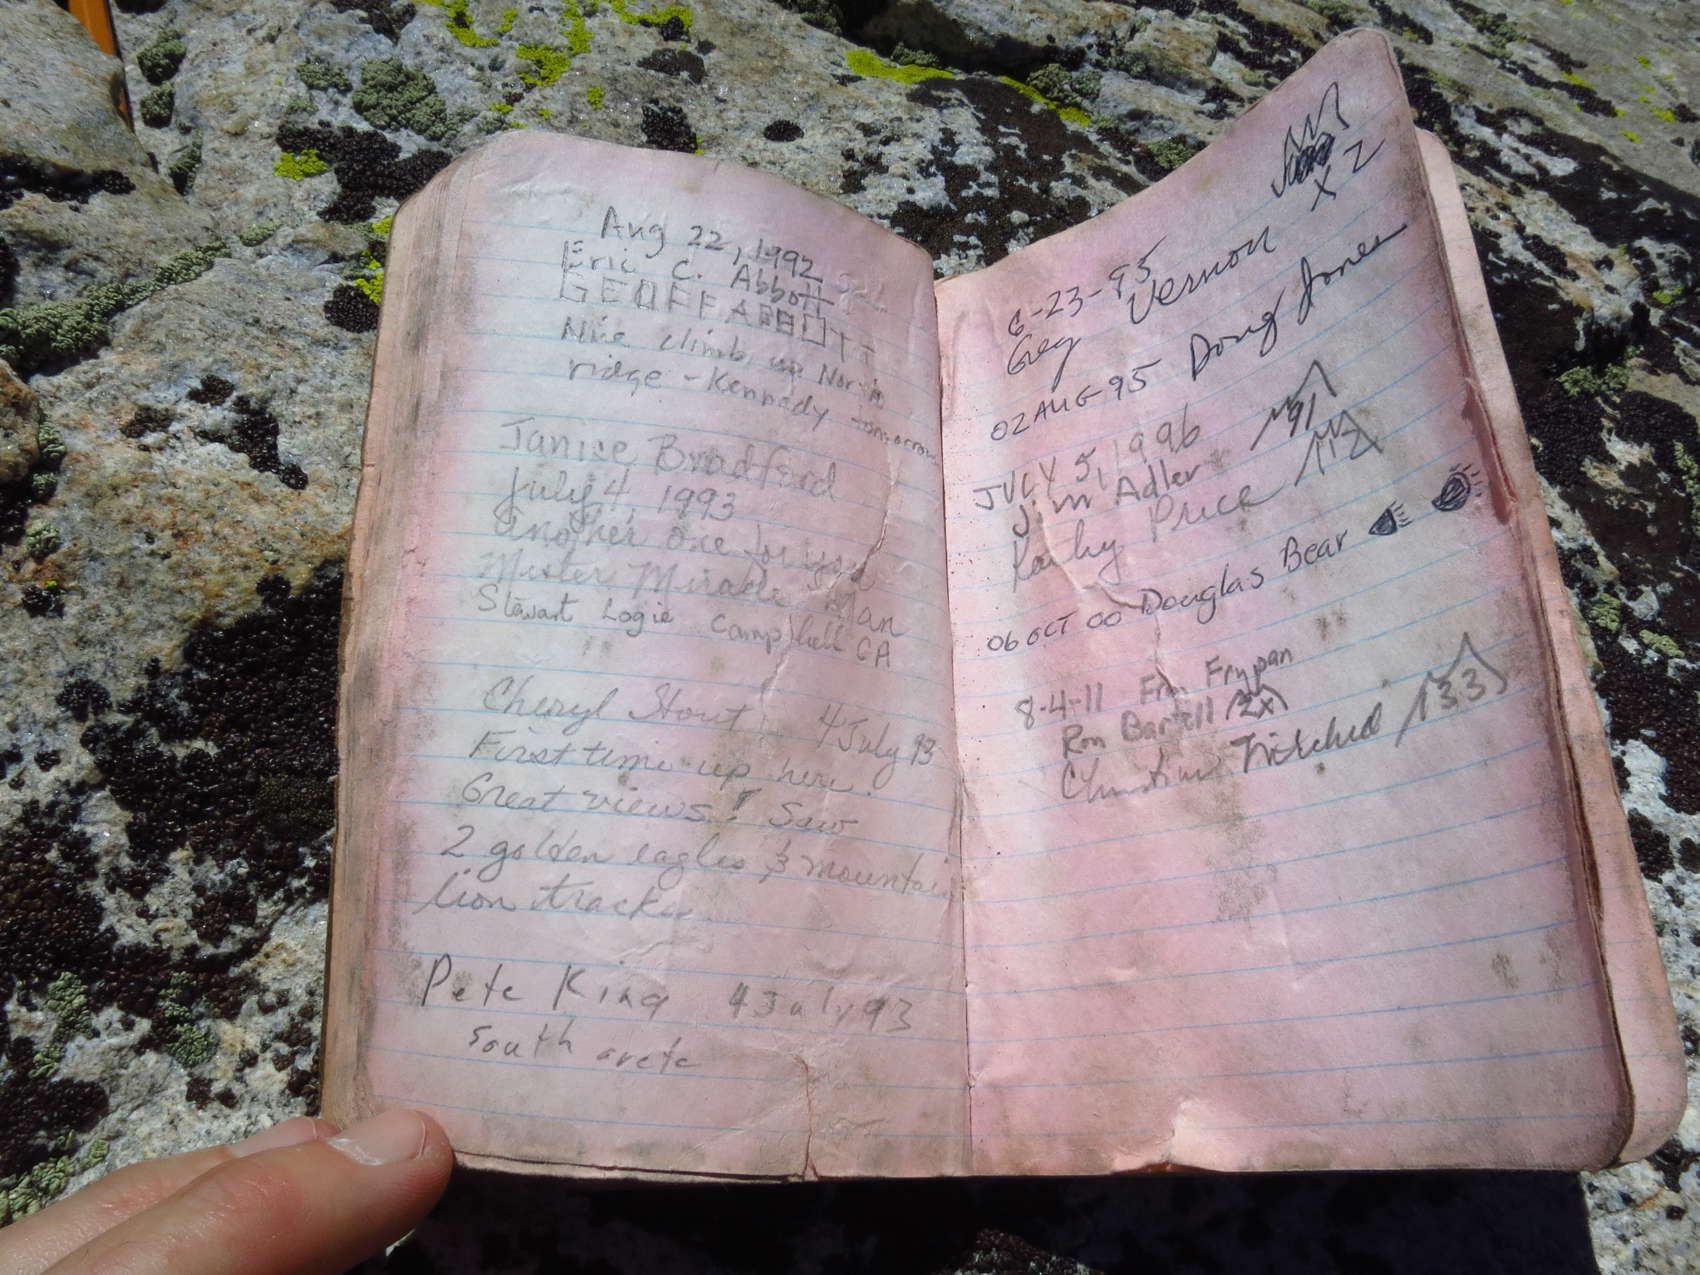 Aug 22, 1992
Eric C. Abbott
GEOFF ABBOTT
Nice climb up North
ridge - Kennedy tomorrow
Janice Bradford
July 4, 1993
another one for you
Mister Miracle Man
Stewart Logie Campbell CA
Cheryl Stout 4 July 93
First time up here.
Great views! Saw
2 golden eagles & mountain
lion tracks
Pete King 4 July 93
South arete
X 2
6-23-95
Greg Vernon
02 AUG 95 Doug Jones
JULY 5, 1996
Jim Adler 91
Kathy Price 112
06 OCT 00 Douglas Bear
8-4-11 Frypan
Ron Bartell (2x)
133